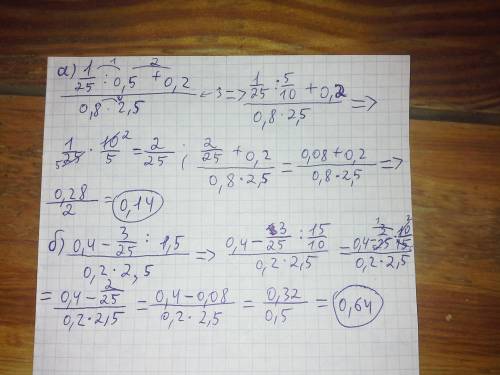 а) (1/25 : 0,5 + 0,2)/(0,8 · 2,5) ⇒ (1/25 : 5/10 + 0,2)/(0,8 · 2,5) ⇒
1/25 · 10/5 = 2/25 ; (2/25 + 0,2)/(0,8 · 2,5) = (0,08 + 0,2)/(0,8 · 2,5) ⇒
0,28/2 = 0,14
б) (0,4 - 3/25 : 1,5)/(0,2 · 2,5) ⇒ (0,4 - 3/25 : 15/10)/(0,2 · 2,5) = (0,4 - 3/25 · 10/15)/(0,2 · 2,5)
= (0,4 - 2/25)/(0,2 · 2,5) = (0,4 - 0,08)/(0,2 · 2,5) = 0,32/0,5 = 0,64